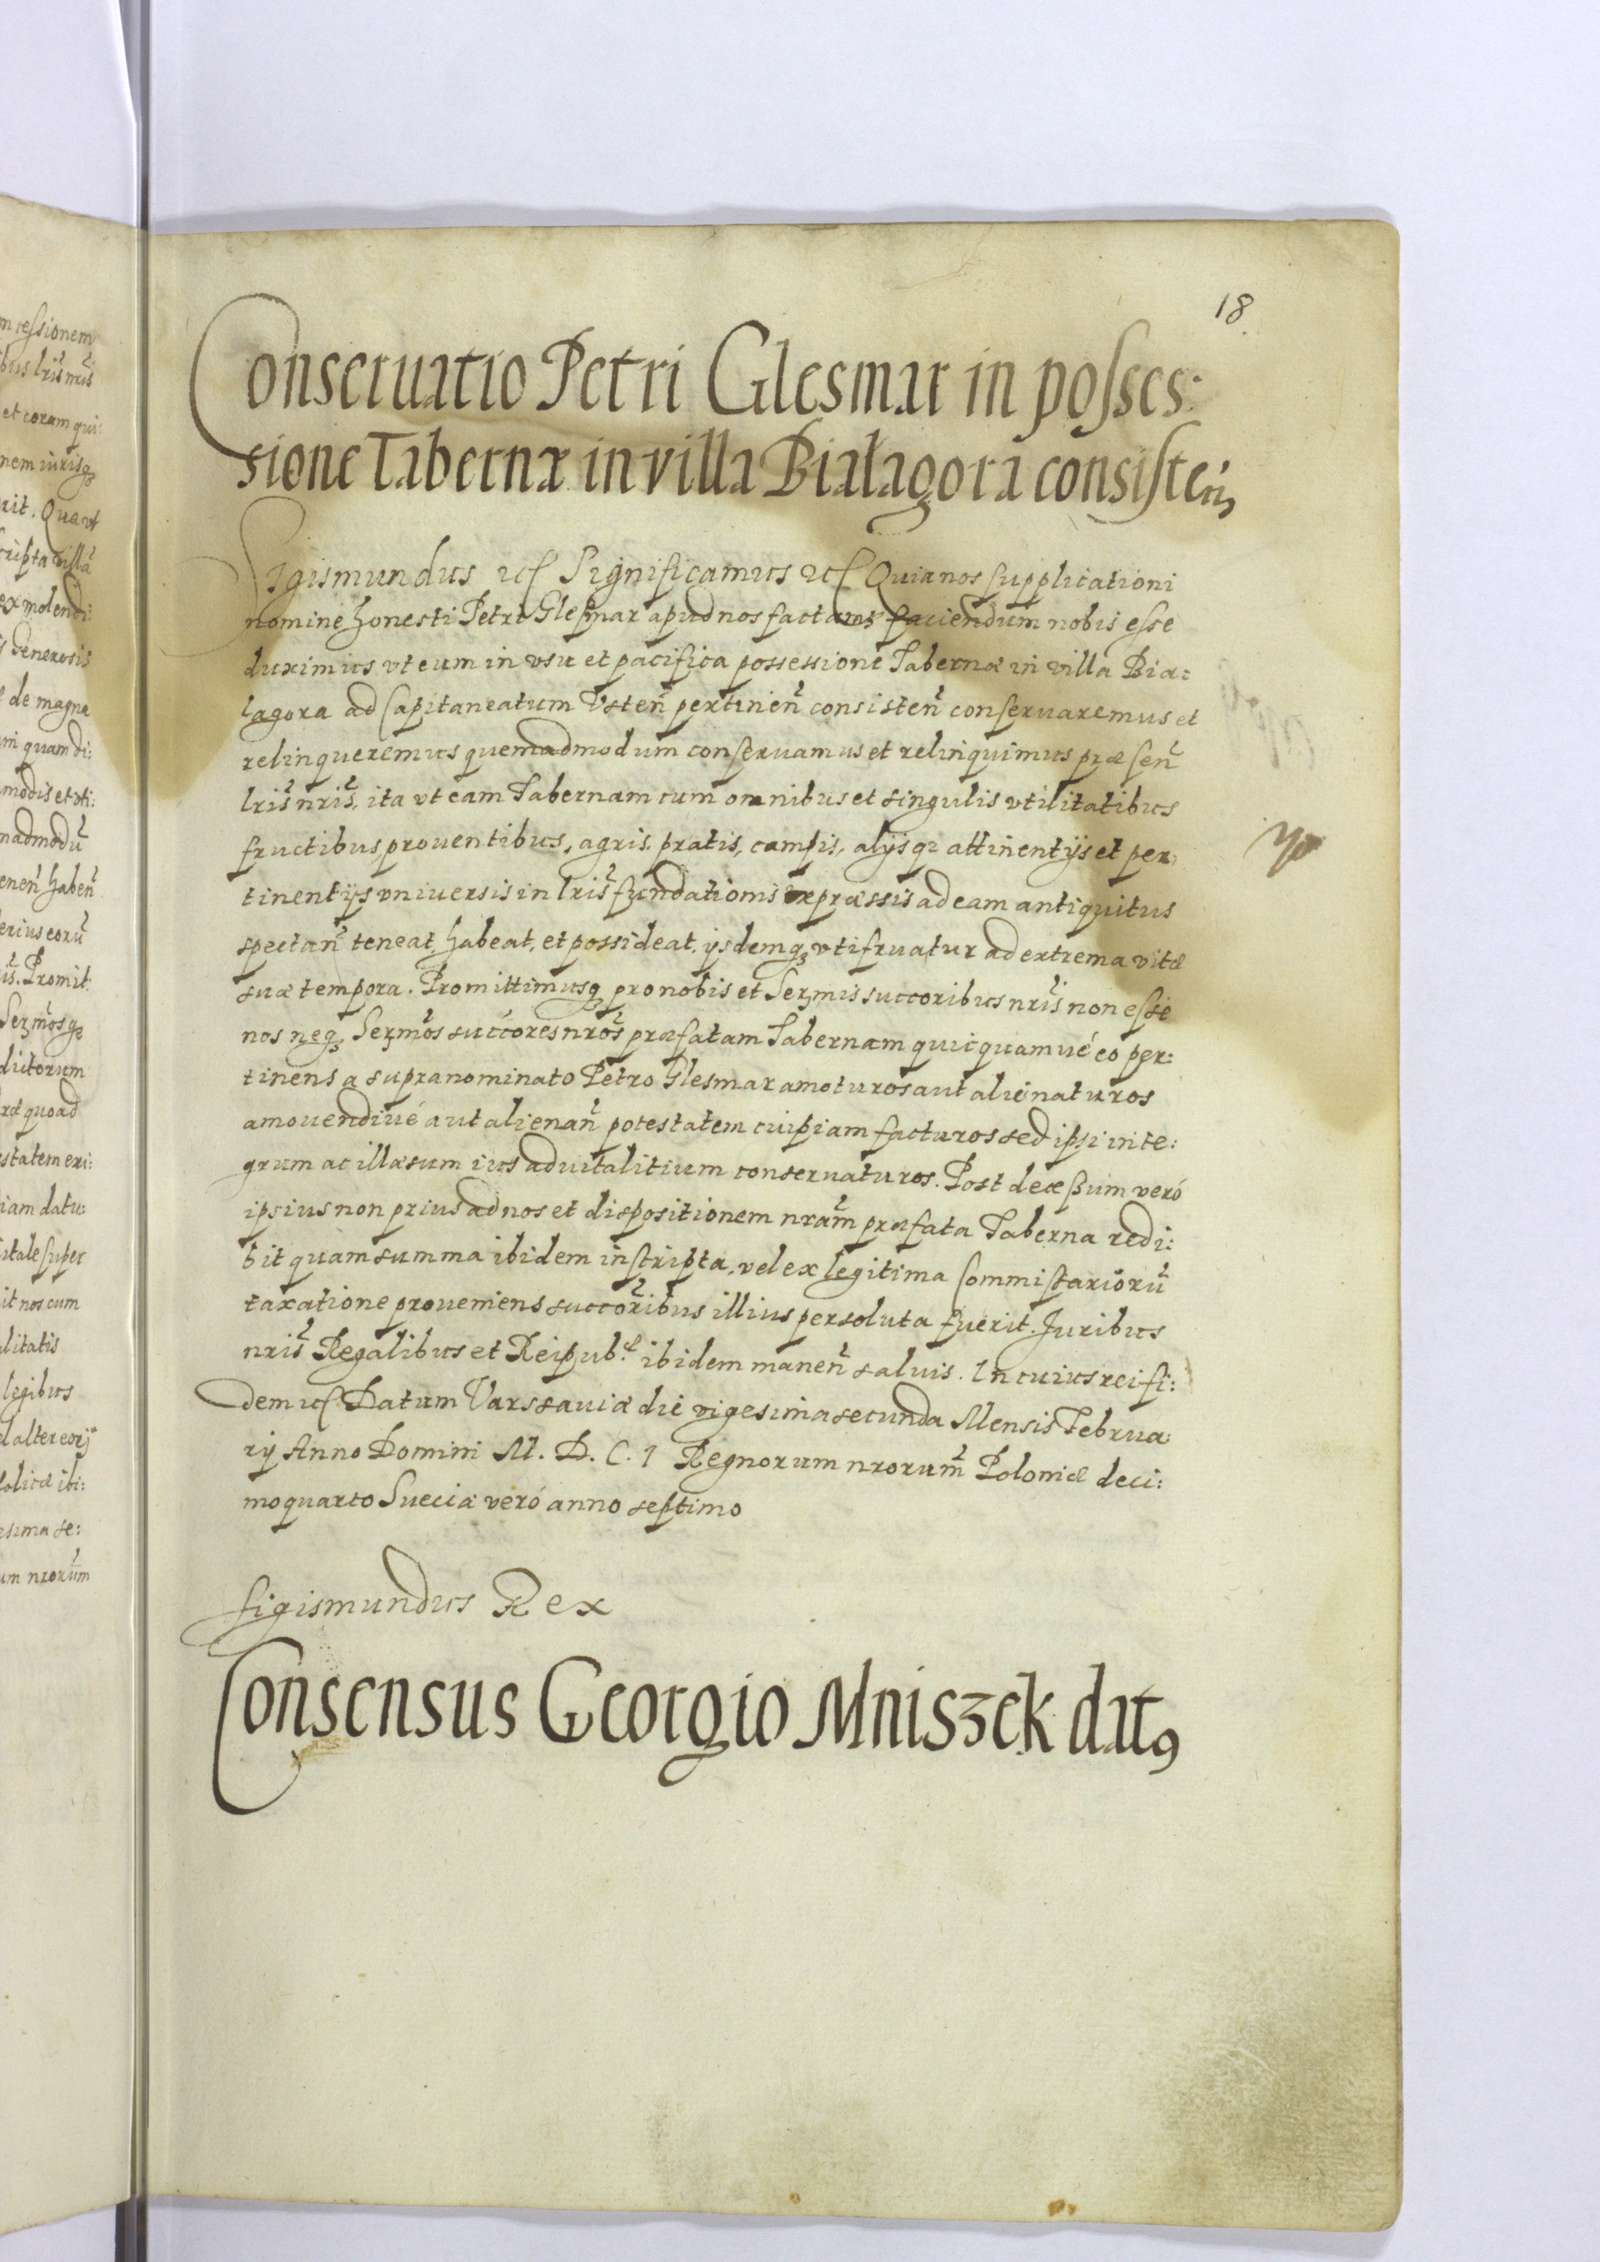 18
Conseruatio Petri Glesmar in posses:
sione Tabernæ in villa Białagora consisten̄
Sigismundus etc Significamus etc Quia nos supplicationi
nomine honesti Petri Gleßmar apud nos factæ faciendum nobis esse
duximus vt eum in vsu et pacifica possessione Tabernæ in villa Bia:
lagora ad Capitaneatum Vsten̄ pertinen̄ consisten̄ conseruaremus et
relinqueremus quemadmodum conseruamus et relinquimus præsen̄
lris nris, ita vt eam Tabernam cum omnibus et singulis vtilitatibus
fructibus, prouentibus, agris, pratis, campis, alijsq; attinentijs et per,
tinentijs vniuersis in lris fundationis expræssis ad eam antiquitus
spectan̄ teneat, habeat, et possideat, ijsdemq; vtifruatur ad extrema vitæ
suæ tempora. Promittimusq; pro nobis et Serm̄is succoribus nris non esse
nos neq; Serm̄os succores nros præfatam Tabernam quicquamué eo per:
tinens a supranominato Petro Glesmar amoturos aut alienaturos
amouendiué aut alienan̄ potestatem cuipiam facturos sed ipsi inte:
grum ac illæsum ius aduitalitium conseruaturos. Post decæßum veró
ipsius non prius ad nos et dispositionem nram̄ præfata Taberna redi:
bit quam summa ibidem inscripta, vel ex legitima Commissariorū
taxatione proueniens succoribus illius persoluta fuerit. Juribus
nris Regalibus et Reipub: ibidem manen̄ saluis. In cuius rei fi:
dem etc Datum Varssauiæ die vigesima secunda Mensis Februa:
rij Anno Domini M. D. C. I Regnorum nrorum̄ Poloniæ deci:
moquarto Sueciæ veró anno septimo
Sigismundus Rex
Consensus Georgio Mniszek datꝰ